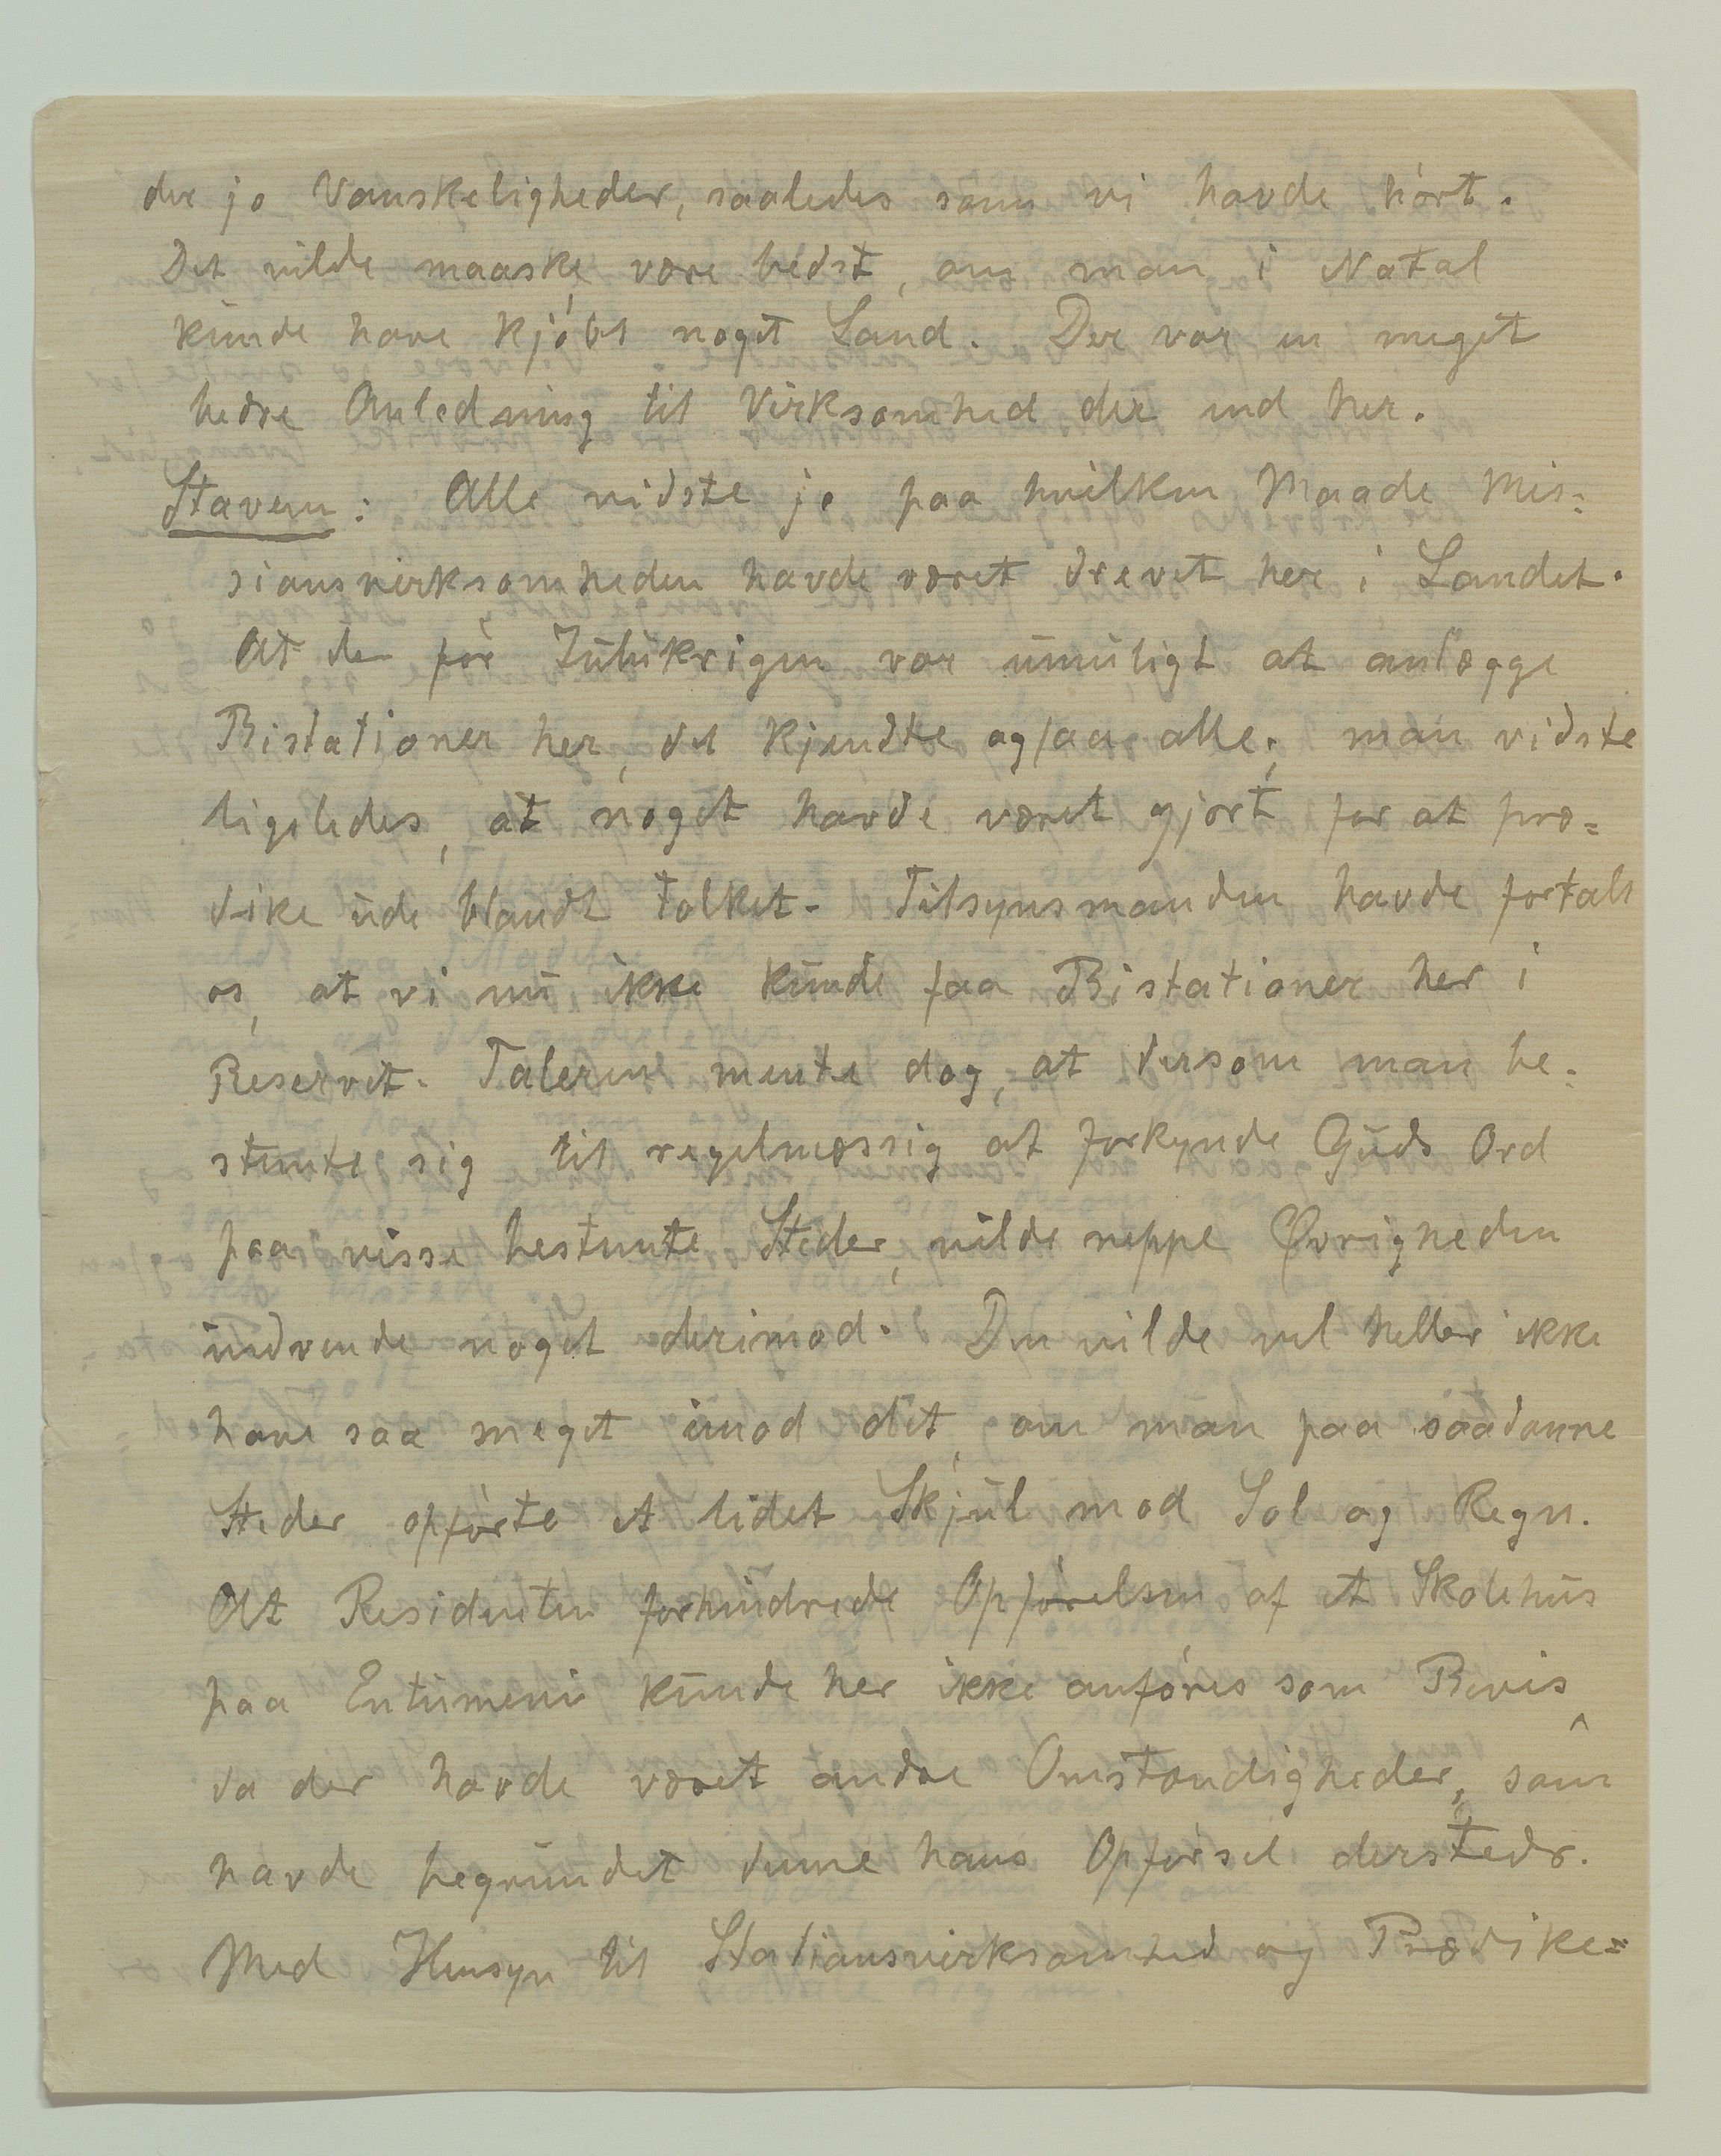 der jo Vanskeligheder, saaledes som vi havde hørt.
Det vilde maaske være bedst, om man i Natal
kunde have kjøbt noget Land. Der var en meget
bedre Anledning til Virksomhed der end her.
Stavem: Alle vidste jo paa hvilken Maade Mis=
sionsvirksomheden havde været drevet her i Landet.
At de før Zulukrigen var umuligt at anlægge
Bistationer her, det kjendte ogsaa alle; man vidste
ligeledes, at noget havde været gjort for at præ=
dike ude blandt Folket. Tilsynsmanden havde fortalt
os, at vi nu ikke kunde faa Bistationer her i
Reservet. Taleren mente dog, at dersom man be=
stemte sig til regelmæssig at forkynde Guds Ord
paa visse bestemte Steder, vilde neppe Øvrigheden
indvende noget derimod. Den vilde vel heller ikke
have saa meget imod det, om man paa saadanne
Steder opførte et lidet Skjul mod Sol og Regn.
At Residenten forhindrede Opførelsen af et Skolehus
paa Entumeni kunde her ikke anføres som Bevis
da der havde været andre Omstændigheder, som
havde begrundet denne hans Opførsel dersteds.
Med Hensyn til Stationsvirksomhed og Prædike=